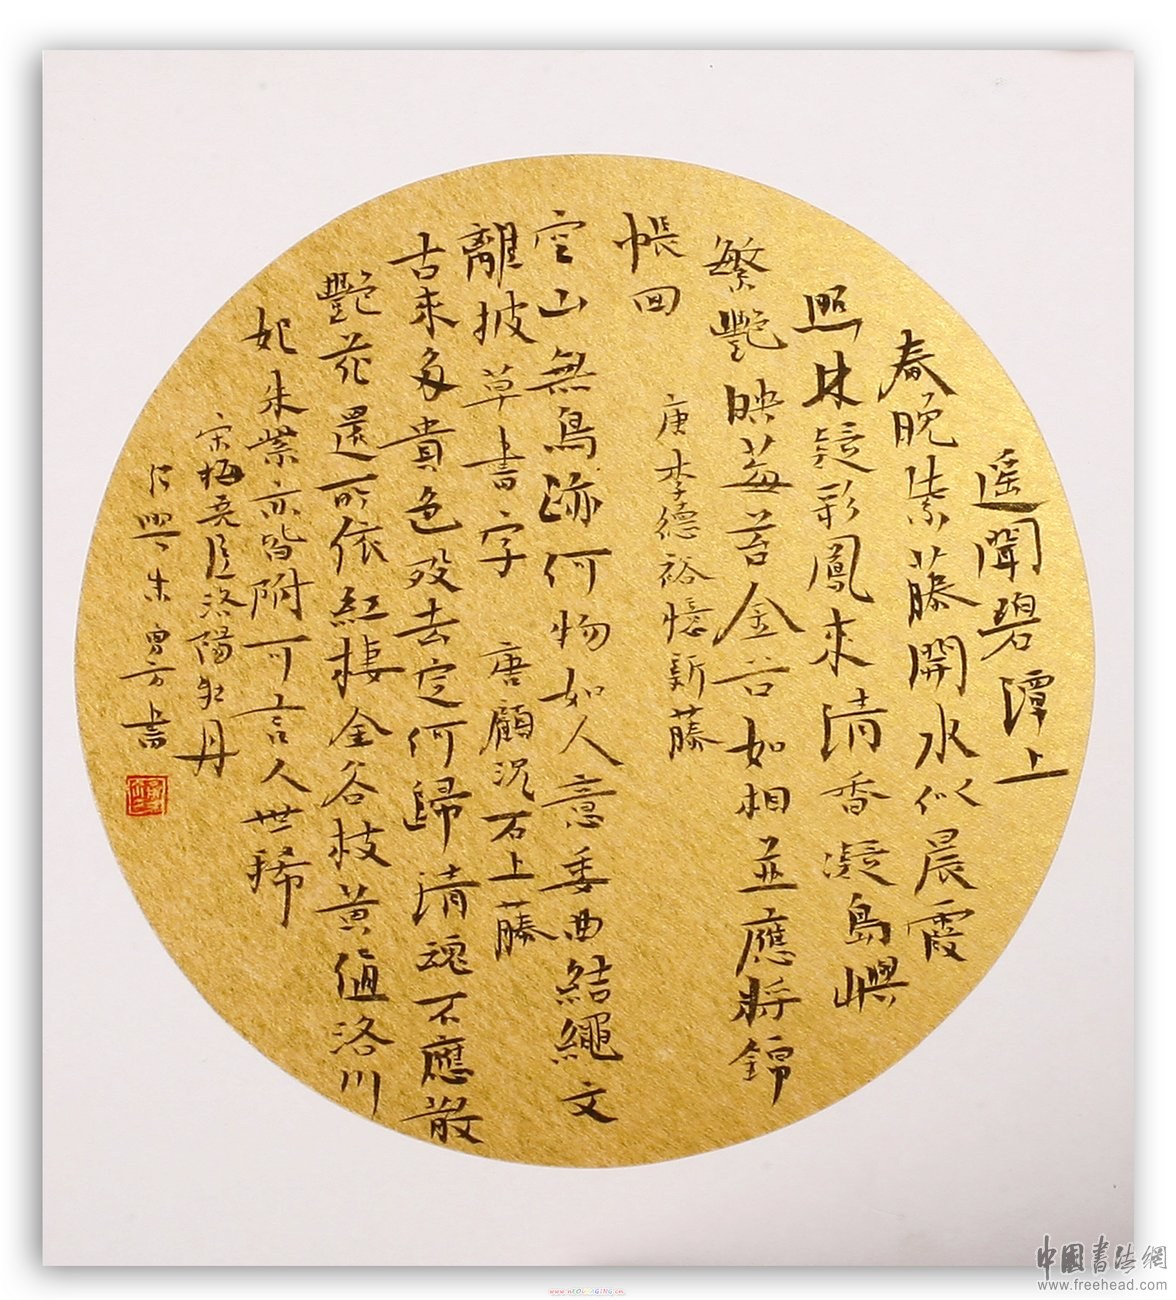 遥聞碧潭上
春晚紫藤開水似晨霞
照林疑彩鳳來清香凝島嶼
繁艷映莓苔金谷如相並應將錦
帳回
唐李德裕憶新藤
空山無鳥迹何物如人意委曲結繩文
離披草書字 唐顧況石上藤
古來多貴色歿去定何歸清魂不應散
艷花還所依紅棲金谷枝黃值洛川
妃朱紫亦皆附可言人世稀
宋梅堯臣洛陽牡丹
朱 方書
中國書法網
www.freehead.com